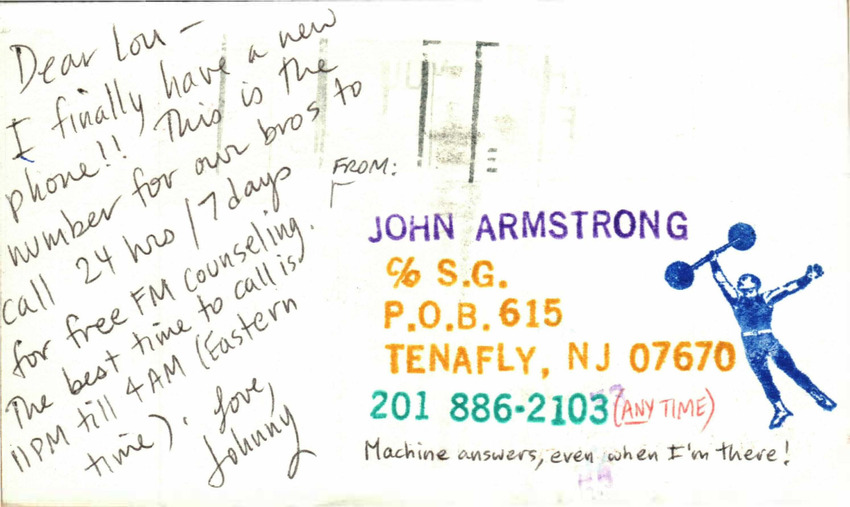 Dear Lou –
I finally have a new
phone!! This is the
number for our bros to
call 24 hrs / 7 days
for free FM counseling.
The best time to call is
11PM till 4AM (Eastern
time). Love,
Johnny
FROM:
JOHN ARMSTRONG
c/o S.G.
P.O.B. 615
TENAFLY, NJ 07670
201 886-2103 (ANY TIME)
Machine answers, even when I'm there!